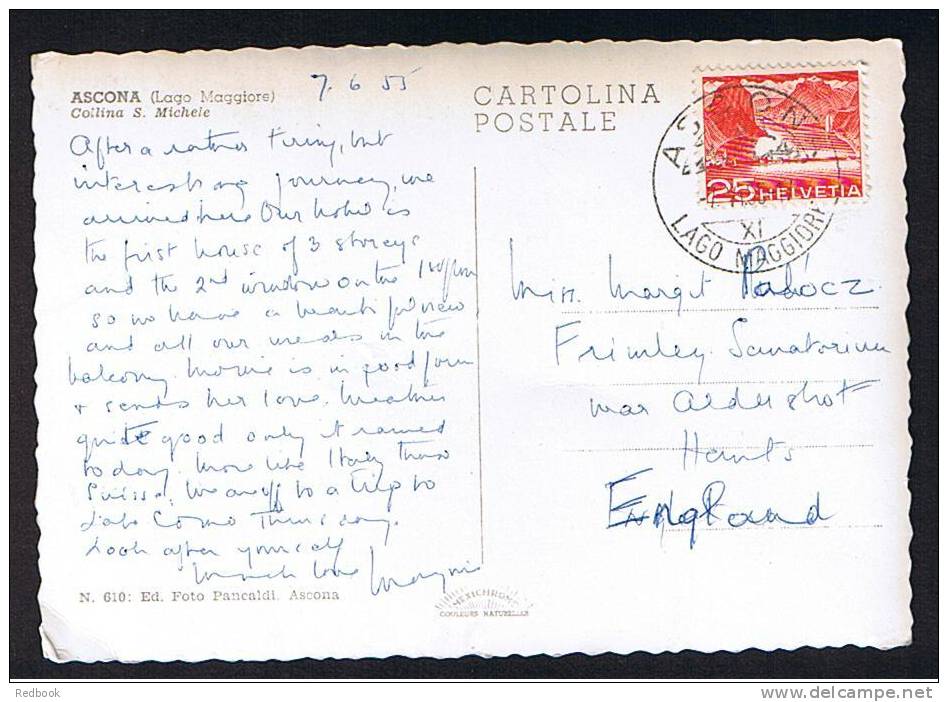 7.6.55
ASCONA (Lago Maggiore)
Collina S. Michele
CARTOLINA
POSTALE
After a rather tiring, but
interesting journey, we
arrived here Our hotel is
the first house of 3 storeys
and the 2nd window on the 1st floor
so we have a beautiful view
and all our meals in the
balcony. is in good form
& sends her love. Weather
quite good only it rained
today. More like Italy than
Suisse. We are off to a trip to
Lake Como Thursday.
Look after yourself
Much love
N. 610: Ed. Foto Pancaldi. Ascona
25 HELVETIA
ASCONA
XI
LAGO MAGGIORE
Miss. Margit
Frimley Sanatorium
near Aldershot
Hants
England
MEXICHROME
COULEURS NATURELLES
Redbook
www.delcampe.net